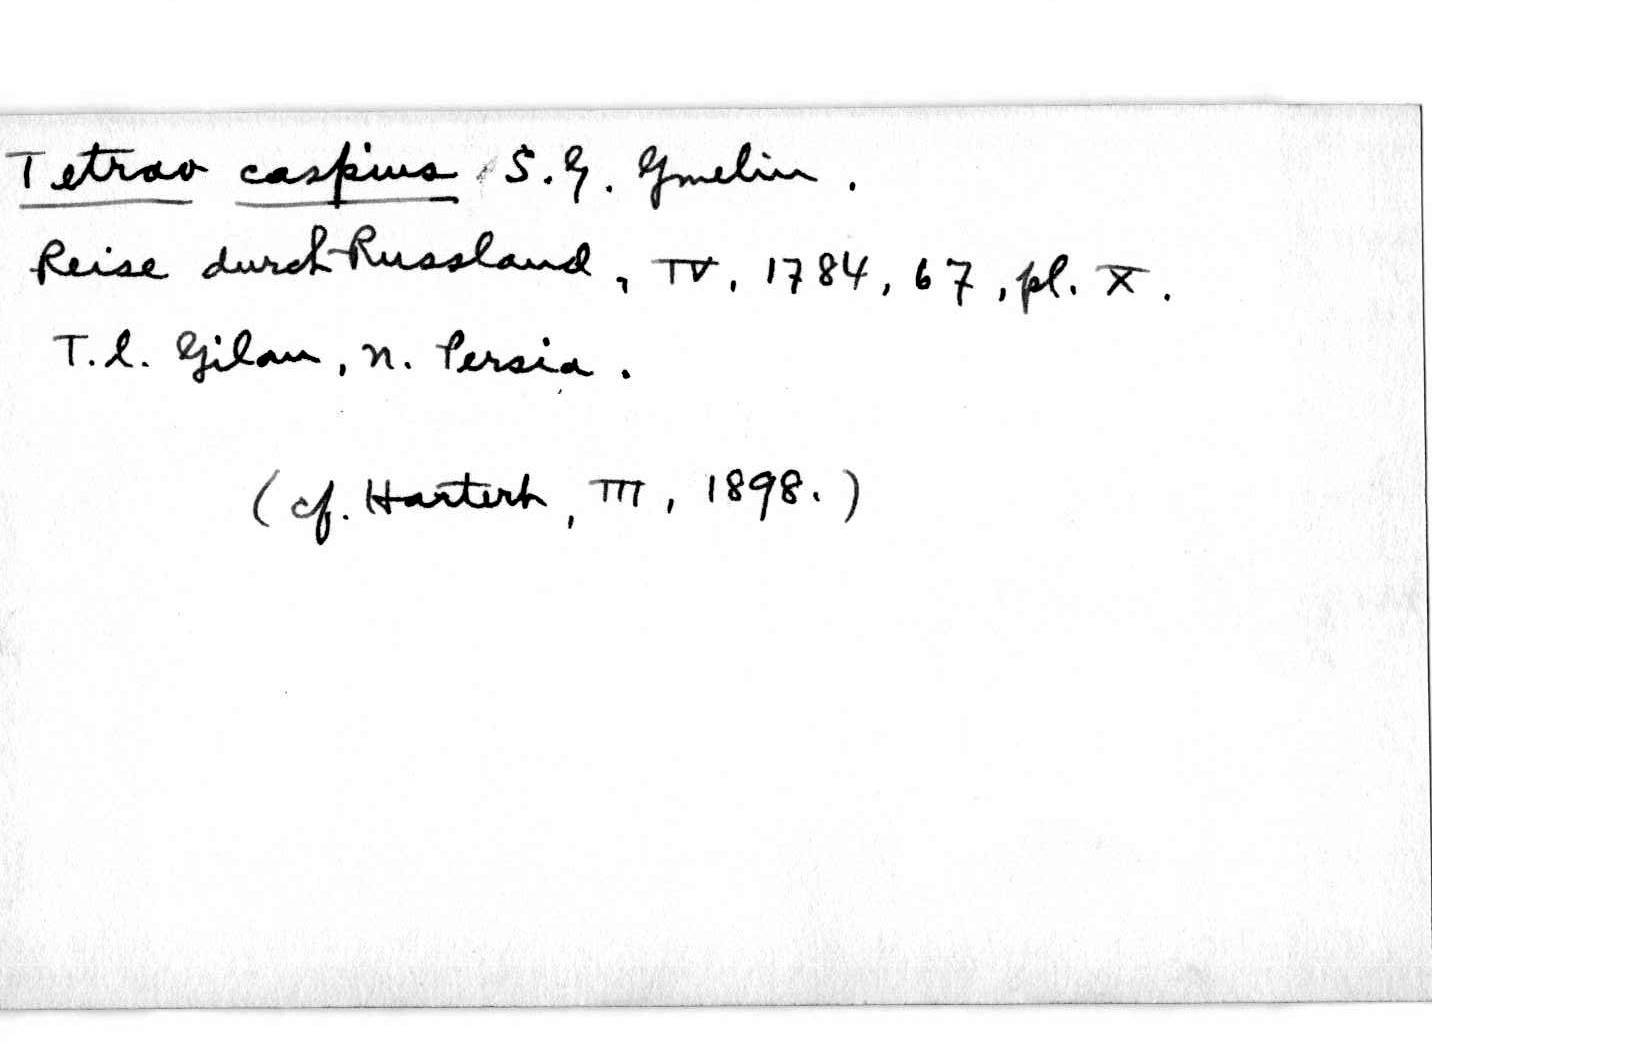 Tetrao caspius S. G. Gmelin.
Reise durch Russland, IV, 1784, 67, pl. X.
T.l. Gilan, n. Persia.
(cf. Hartert, III, 1898.)